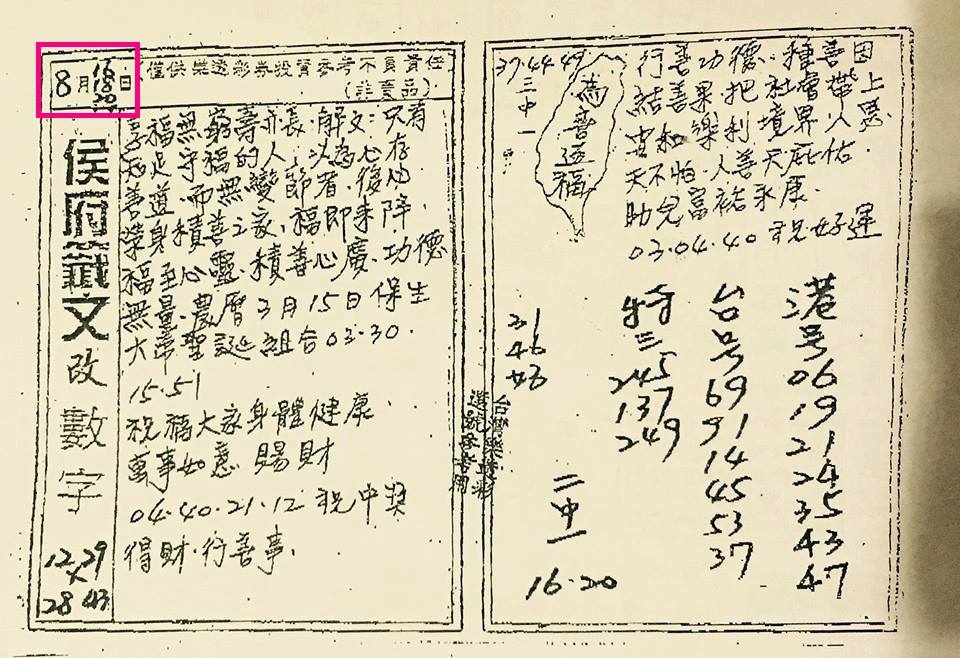 8月16 18 20日
僅供樂透彩券投資參考不負責任
侯府籤文
改數字
12 29
28 43
享福無窮壽亦長.解文:只有
知足守福的人.以為心存
善道.而無變節者.後代
榮身.積善之家,福即来降.
福至心靈.積善心廣.功德
無量.農曆3月15日保生
大帝聖誕組合03.30.
15.51
祝福大家身體健康.
萬事如意.賜財
04.40.21.12 祝中獎
得財.行善事.
台灣樂透彩
選號參考用
37.44.49
三中一
為善造福
行善功德.種善因
結善果.把社會帶上
和樂利境界.人惡
天不怕.人善天庇佑
富裕永康.
03.04.40 祝好運
港号
06
19
21
24
35
43
47
台号
69
91
14
45
53
37
特三
245
137
249
31
46
二中一
16.20